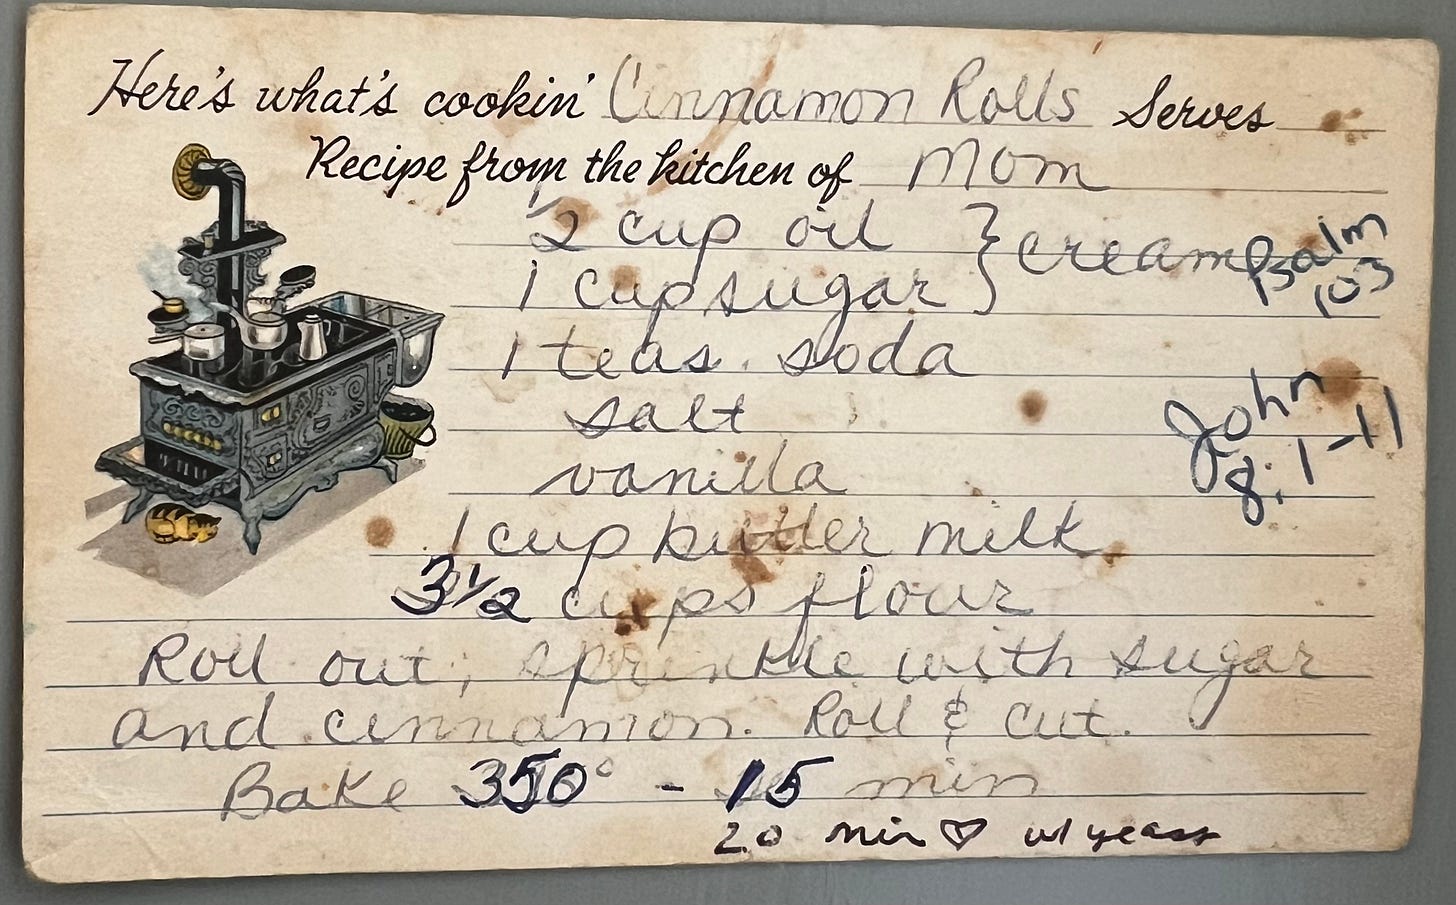 Here's what's cookin' Cinnamon Rolls Serves
Recipe from the kitchen of Mom
1/2 cup oil } cream
1 cup sugar
Psalm
103
1 teas. soda
salt
John
8:1-11
vanilla
1 cup butter milk
3 1/2 cups flour
Roll out; sprinkle with sugar
and cinnamon. Roll & cut.
Bake 350° - 15 min
20 min ♡ w/ yeast